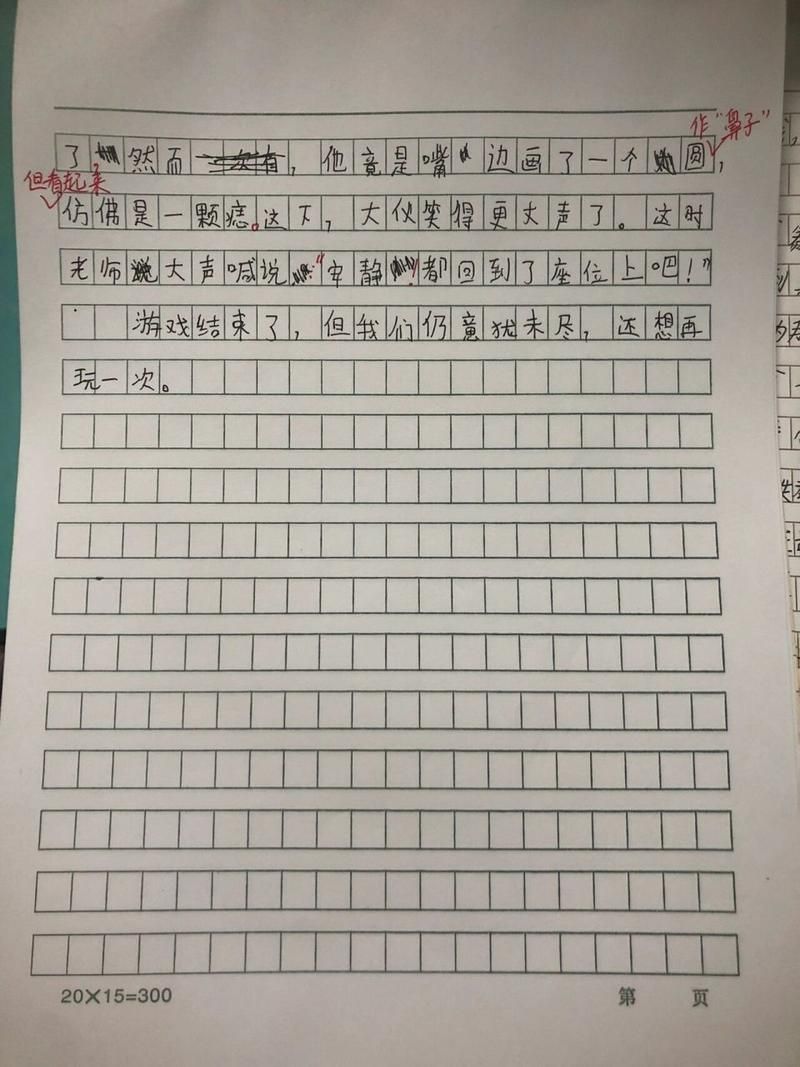 作"鼻子"
了，然而，他竟是嘴边画了一个圆，
但看起来
仿佛是一颗痣。这下，大伙笑得更大声了。这时
老师大声喊说："安静！都回到了座位上吧！"
游戏结束了，但我们仍意犹未尽，还想再
玩一次。
20×15=300
第 页